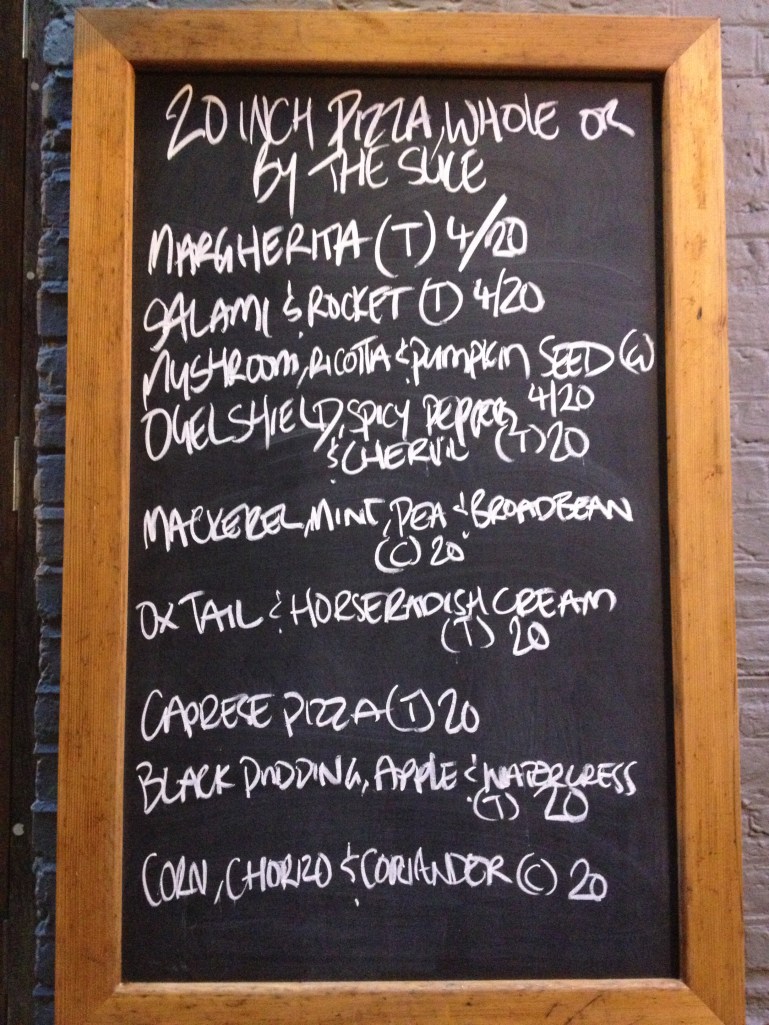 20 INCH PIZZA, WHOLE OR
BY THE SLICE
MARGHERITA (T) 4/20
SALAMI & ROCKET (T) 4/20
MUSHROOM, RICOTTA & PUMPKIN SEED (W)
4/20
OGELSHIELD, SPICY PEPPER
& CHERVIL (T) 20
MACKEREL, MINT, PEA & BROADBEAN
(C) 20
OX TAIL & HORSERADISH CREAM
(T) 20
CAPRESE PIZZA (T) 20
BLACK PUDDING, APPLE & WATERCRESS
(T) 20
CORN, CHORIZO & CORIANDER (C) 20